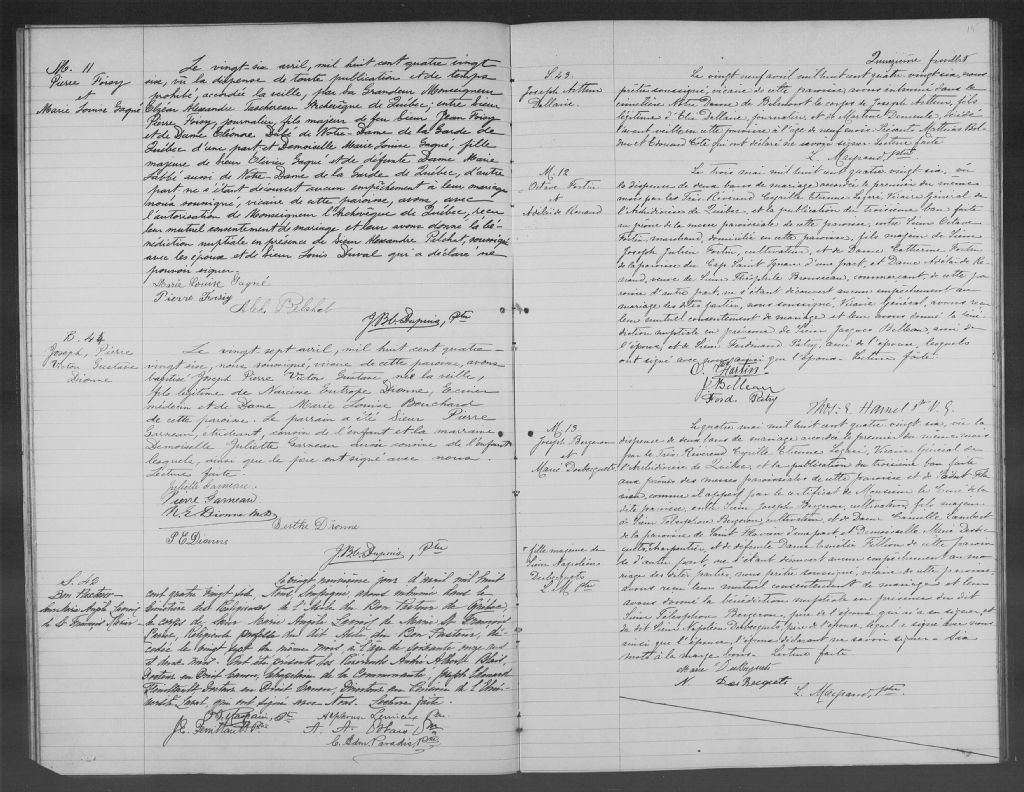 M. 11
Pierre Foisy
et
Marie Louise Gagné
Le vingt-six avril, mil huit cent quatre vingt
six, vû la dispense de toute publication et de temps
prohibé, accordée la veille, par Sa Grandeur Monseigneur
Elzéar Alexandre Taschereau Archevêque de Québec; entre Sieur
Pierre Foisy, journalier, fils majeur de feu Sieur Jean Foisy
et de Dame Eléonore Dubé de Notre-Dame de la Garde de
Québec d'une part et Demoiselle Marie Louise Gagné, fille
majeure de Sieur Olivier Gagné et de défunte Dame Marie
Labbé aussi de Notre-Dame de la Garde de Québec, d'autre
part ne s'étant découvert aucun empêchement à leur mariage
nous soussigné, vicaire de cette paroisse, avons, avec
l'autorisation de Monseigneur l'Archevêque de Québec, reçu
leur mutuel consentement de mariage et leur avons donné la bé-
nédiction nuptiale en présence de Sieur Alexandre Pélchat, soussigné
avec les époux et de Sieur Louis Duval qui a déclaré ne
pouvoir signer.
Marie Louise Gagné
Pierre Foisy
Alex. Pelchat
J. Bte. Dupuis, Ptre
B. 44
Joseph, Pierre
Victor Gustave
Dionne
Le vingt-sept avril, mil huit cent quatre-
vingt six, nous soussigné, vicaire de cette paroisse, avons
baptisé Joseph Pierre Victor Gustave né la veille,
fils légitime de Narcisse Eutrope Dionne, Ecuier
médecin et de Dame Marie Louise Bouchard
de cette paroisse. Le parrain a été Sieur Pierre
Garneau, étudiant, cousin de l'enfant et la marraine
Demoiselle Juliette Garneau aussi cousine de l'enfant
lesquels, ainsi que le père ont signé avec nous
Lecture faite.
Juliette Garneau
Pierre Garneau
N. E. Dionne M.D.
Berthe Dionne
P. E. Dionne
J. Bte. Dupuis, Ptre
S. 42
Bon Pasteur
Sœur Marie
de St François Xavier
Le vingt jour d'avril mil huit
cent quatre vingt six, Nous Soussigné, avons inhumé dans le
cimetière des Religieuses de l'Asile du Bon Pasteur de Québec,
le corps de Sœur Marie de Marie St François
Xavier, Religieuse professe du dit Asile du Bon Pasteur, dé-
cédée le vingt sept du même mois à l'age de soixante onze ans
et deux mois. Ont été présents les Révérends
Docteur en Droit Canon, Chapelain de la Communauté, Joseph Edouard
Docteur en Droit Canon, Directeur au Séminaire de l'Uni-
versité Laval, qui ont signé avec Nous. Lecture faite.
Alphonse Lemieux Ptre
A. A. Blais Ptre
C. Edm. Paradis, Ptre
Quinzième feuillet
S. 43
Joseph Arthur
Dallaire
Le vingt neuf avril mil huit cent quatre vingt six, nous
prêtre soussigné, vicaire de cette paroisse, avons inhumé dans le
cimetière Notre Dame de Belmont le corps de Joseph Arthur, fils
légitime d'Elie Dallaire, journalier, et de Martine Demeule, décédé
l'avant veille en cette paroisse à l'âge de neuf mois. Présents Mathias
et Edouard Coté qui ont déclaré ne savoir signer. Lecture faite.
L. Maynard Ptre
M. 12
Octave Fortin
et
Adélaïde Renaud
Le trois mai mil huit cent quatre vingt six, vû
la dispense de deux bans de mariage accordée le premier du même
mois par le Très Révérend Cyrille Etienne Légaré, Vicaire Général de
l'Archidiocèse de Québec, et la publication du troisième ban faite
au prône de la messe paroissiale de cette paroisse, entre Sieur Octave
Fortin, marchand, domicilié en cette paroisse, fils majeur de Sieur
Joseph Julien Fortin, cultivateur, et de Dame Catherine Fortin
de la paroisse du Cap Saint Ignace d'une part, et Dame Adélaïde Re-
naud, veuve de Sieur Théophile Brousseau, commerçant, de cette pa-
roisse d'autre part, ne s'étant découvert aucun empêchement au
mariage les dits parties, nous soussigné, Vicaire Général, avons reçu
leur mutuel consentement de mariage et leur avons donné la béné-
diction nuptiale en présence de Sieur Jacques Belleau, ami de
l'époux, et de Sieur Ferdinand Vézy, ami de l'épouse, lesquels
ont signé avec nous ainsi que l'épouse. Lecture faite.
O. Fortin
J. Belleau
Ferd. Vézy
Ths. E. Hamel Ptre V. G.
M. 13
Joseph Bergeron
et
Marie Desbecquets
Le quatre mai mil huit cent quatre vingt six, vu la
dispense de deux bans de mariage accordée le premier du même mois
par le Très Révérend Cyrille Etienne Légaré, Vicaire Général de
l'Archidiocèse de Québec, et la publication du troisième ban faite
aux prônes des messes paroissiales de cette paroisse et de Saint Fla-
vien, comme il appert par le certificat de Monsieur le Curé de la
dite paroisse, entre Sieur Joseph Bergeron, cultivateur, fils majeur
de Sieur Télesphore Bergeron, cultivateur, et de Dame Camille Lambert
de la paroisse de Saint Flavien d'une part, et Demoiselle Marie Desbec-
quets, charpentier, et de défunte Dame Emilie Fillion de cette paroisse
de d'autre part, ne s'étant découvert aucun empêchement au ma-
riage des dites parties, nous prêtre soussigné, vicaire de cette paroisse
avons reçu leur mutuel consentement de mariage et leur
avons donné la bénédiction nuptiale en présence du dit
Sieur Télesphore Bergeron, père de l'époux, qui n'a su signer, et
du dit Sieur Napoléon Desbecquets, père de l'épouse, lequel a signé avec nous
ainsi que l'épouse, l'époux déclarant ne savoir signer. Six
mots à la marge bons. Lecture faite.
+ fille majeure de
Sieur Napoléon
Desbecquets
L. M. Ptre
Marie DesBecquets
N. DesBecquets
L. Maynard, Ptre